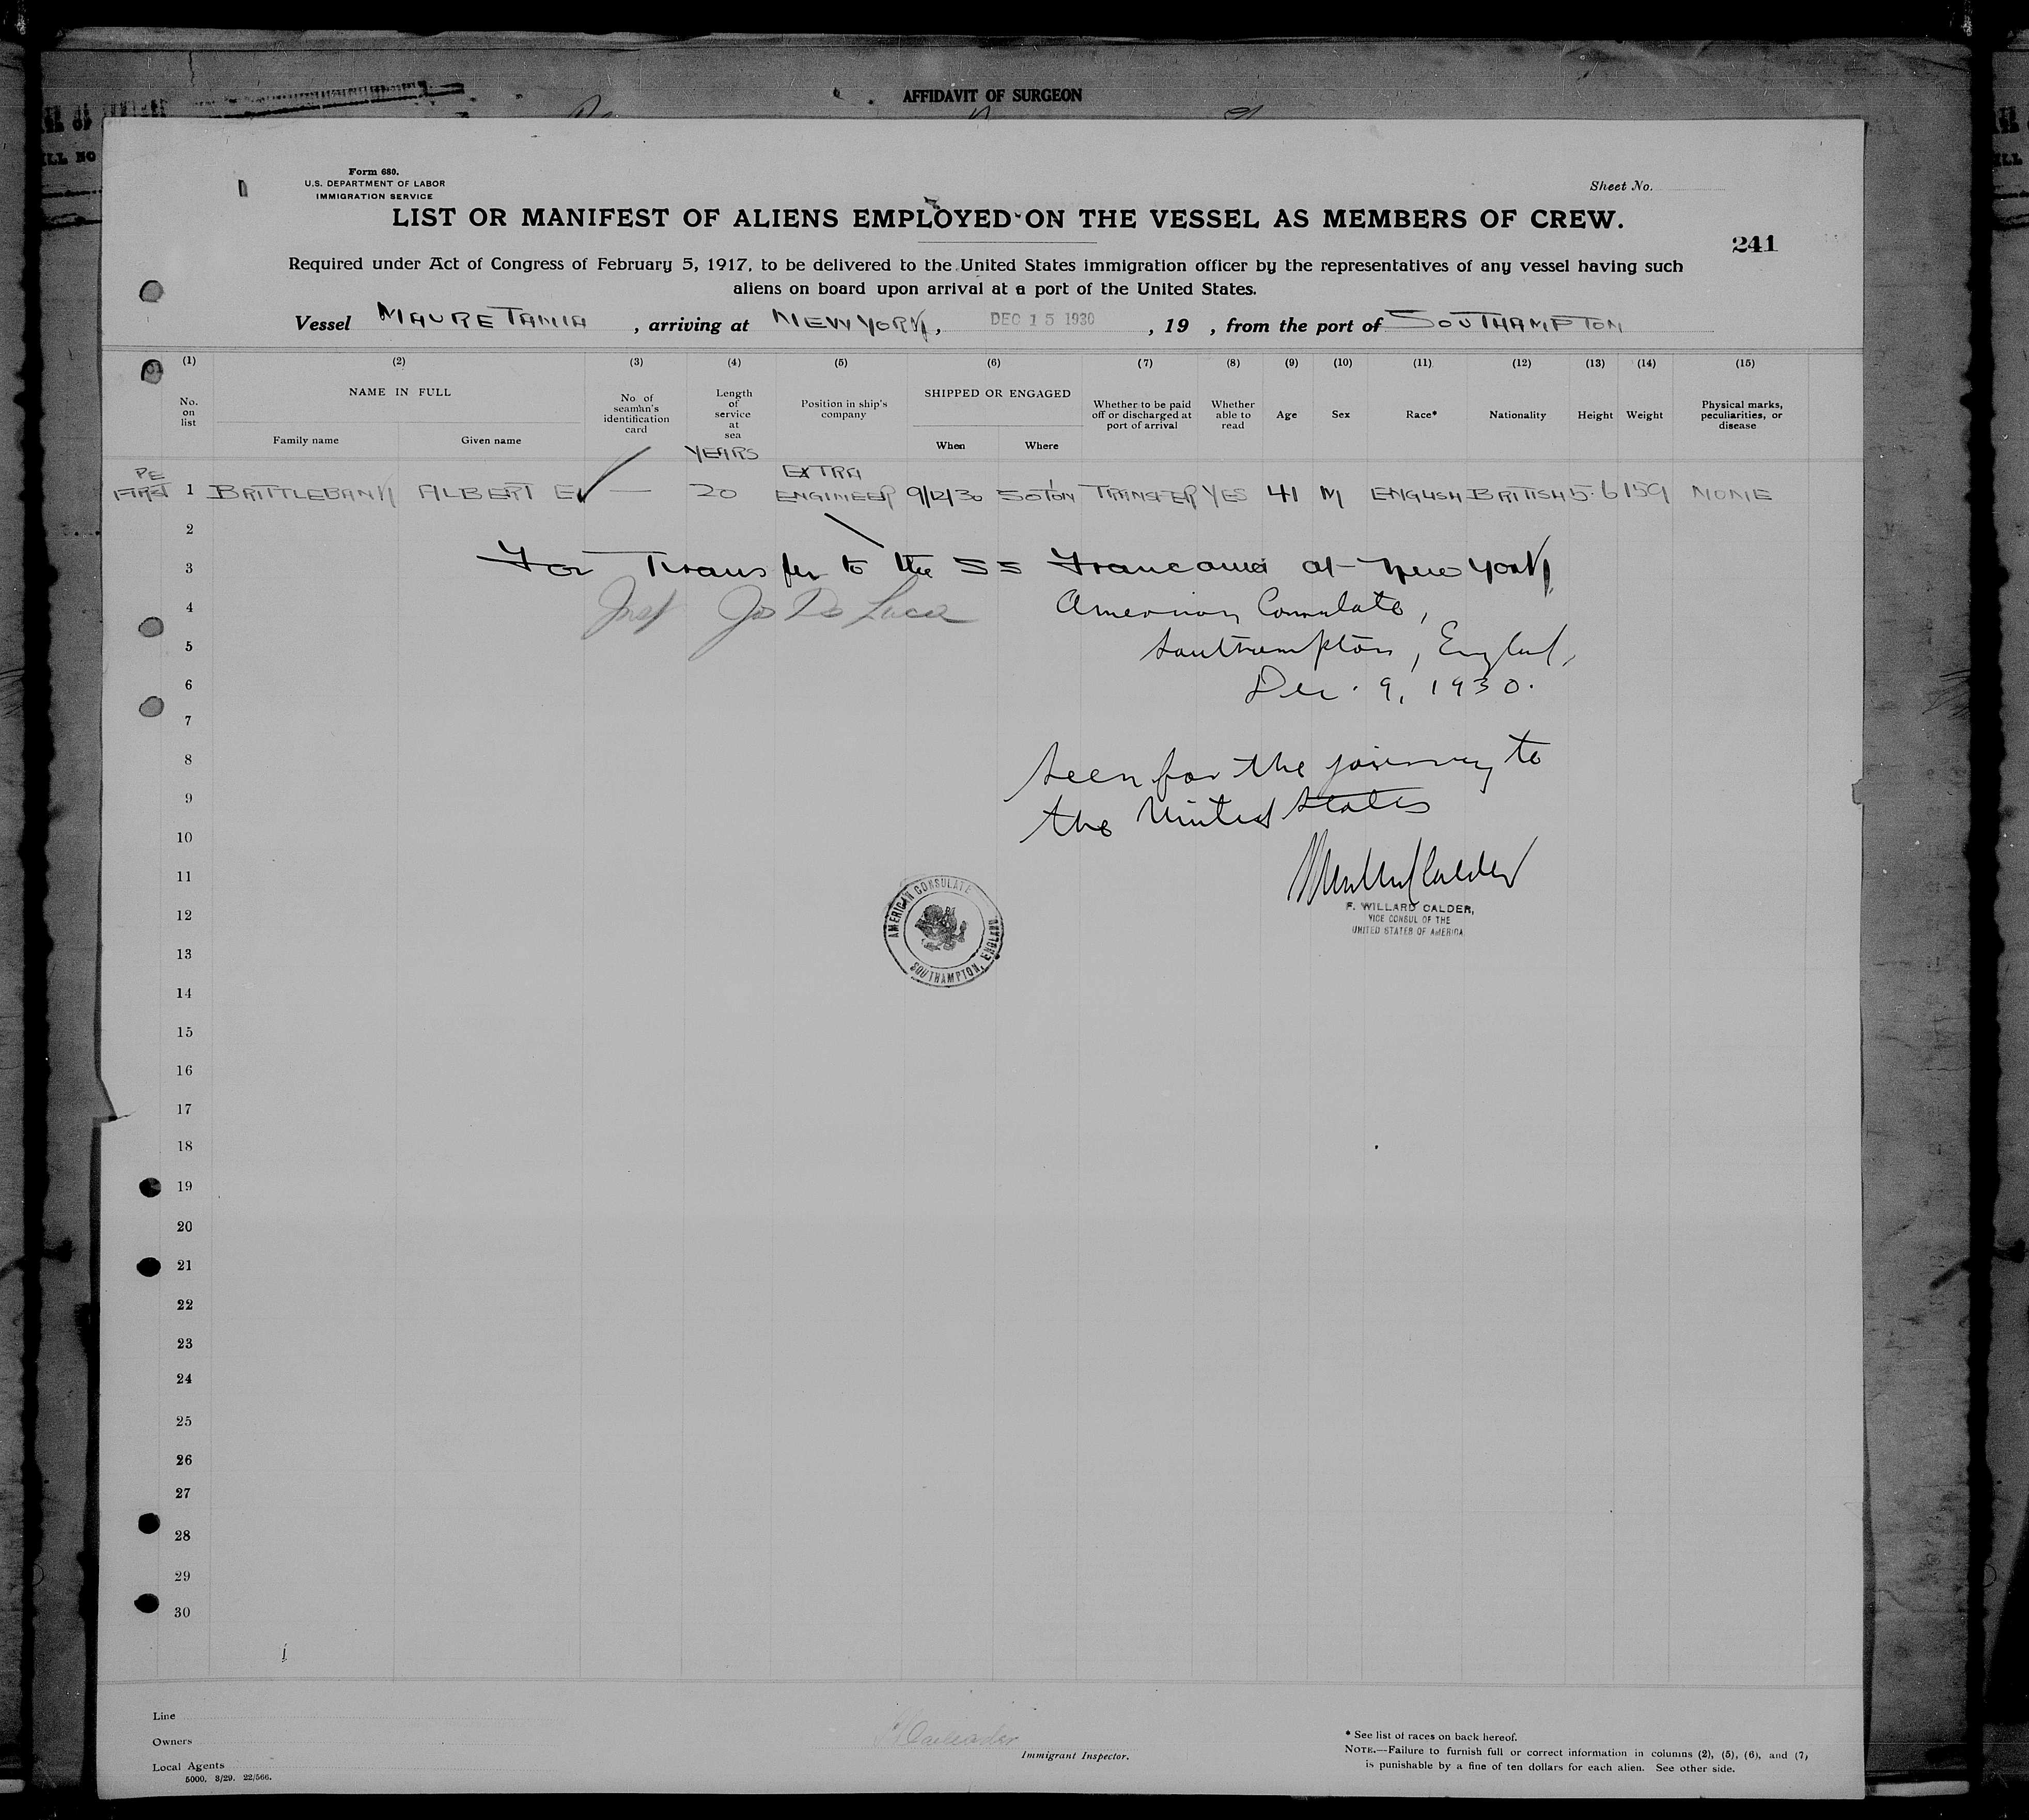 AFFIDAVIT OF SURGEON
Form 680.
U.S. DEPARTMENT OF LABOR
IMMIGRATION SERVICE
Sheet No.
LIST OR MANIFEST OF ALIENS EMPLOYED ON THE VESSEL AS MEMBERS OF CREW.
241
Required under Act of Congress of February 5, 1917, to be delivered to the United States immigration officer by the representatives of any vessel having such
aliens on board upon arrival at a port of the United States.
Vessel MAURETANIA, arriving at NEW YORK, DEC 15 1930, 19 , from the port of SOUTHAMPTON
(1) (2) (3) (4) (5) (6) (7) (8) (9) (10) (11) (12) (13) (14) (15)
No. on list
NAME IN FULL
Family name
Given name
No of seaman's identification card
Length of service at sea
YEARS
Position in ship's company
SHIPPED OR ENGAGED
When
Where
Whether to be paid off or discharged at port of arrival
Whether able to read
Age
Sex
Race*
Nationality
Height
Weight
Physical marks, peculiarities, or disease
PE
FIRST 1 BRITTLEBANK ALBERT E — 20 EXTRA ENGINEER 9/12/30 SOTON TRANSFER YES 41 M ENGLISH BRITISH 5.6 159 NONE
2
3 For Transfer to the SS Franconia at New York
4 Insp Jos De Luca American Consulate,
5 Southampton, England,
6 Dec. 9, 1930.
7
8 Seen for the journey to
9 the United States
10
11
F. WILLARD CALDER,
VICE CONSUL OF THE
UNITED STATES OF AMERICA
AMERICAN CONSULATE
SOUTHAMPTON, ENGLAND
12
13
14
15
16
17
18
19
20
21
22
23
24
25
26
27
28
29
30
Line
Owners
Local Agents
5000. 3/29. 22/566.
Immigrant Inspector.
* See list of races on back hereof.
NOTE.—Failure to furnish full or correct information in columns (2), (5), (6), and (7),
is punishable by a fine of ten dollars for each alien. See other side.